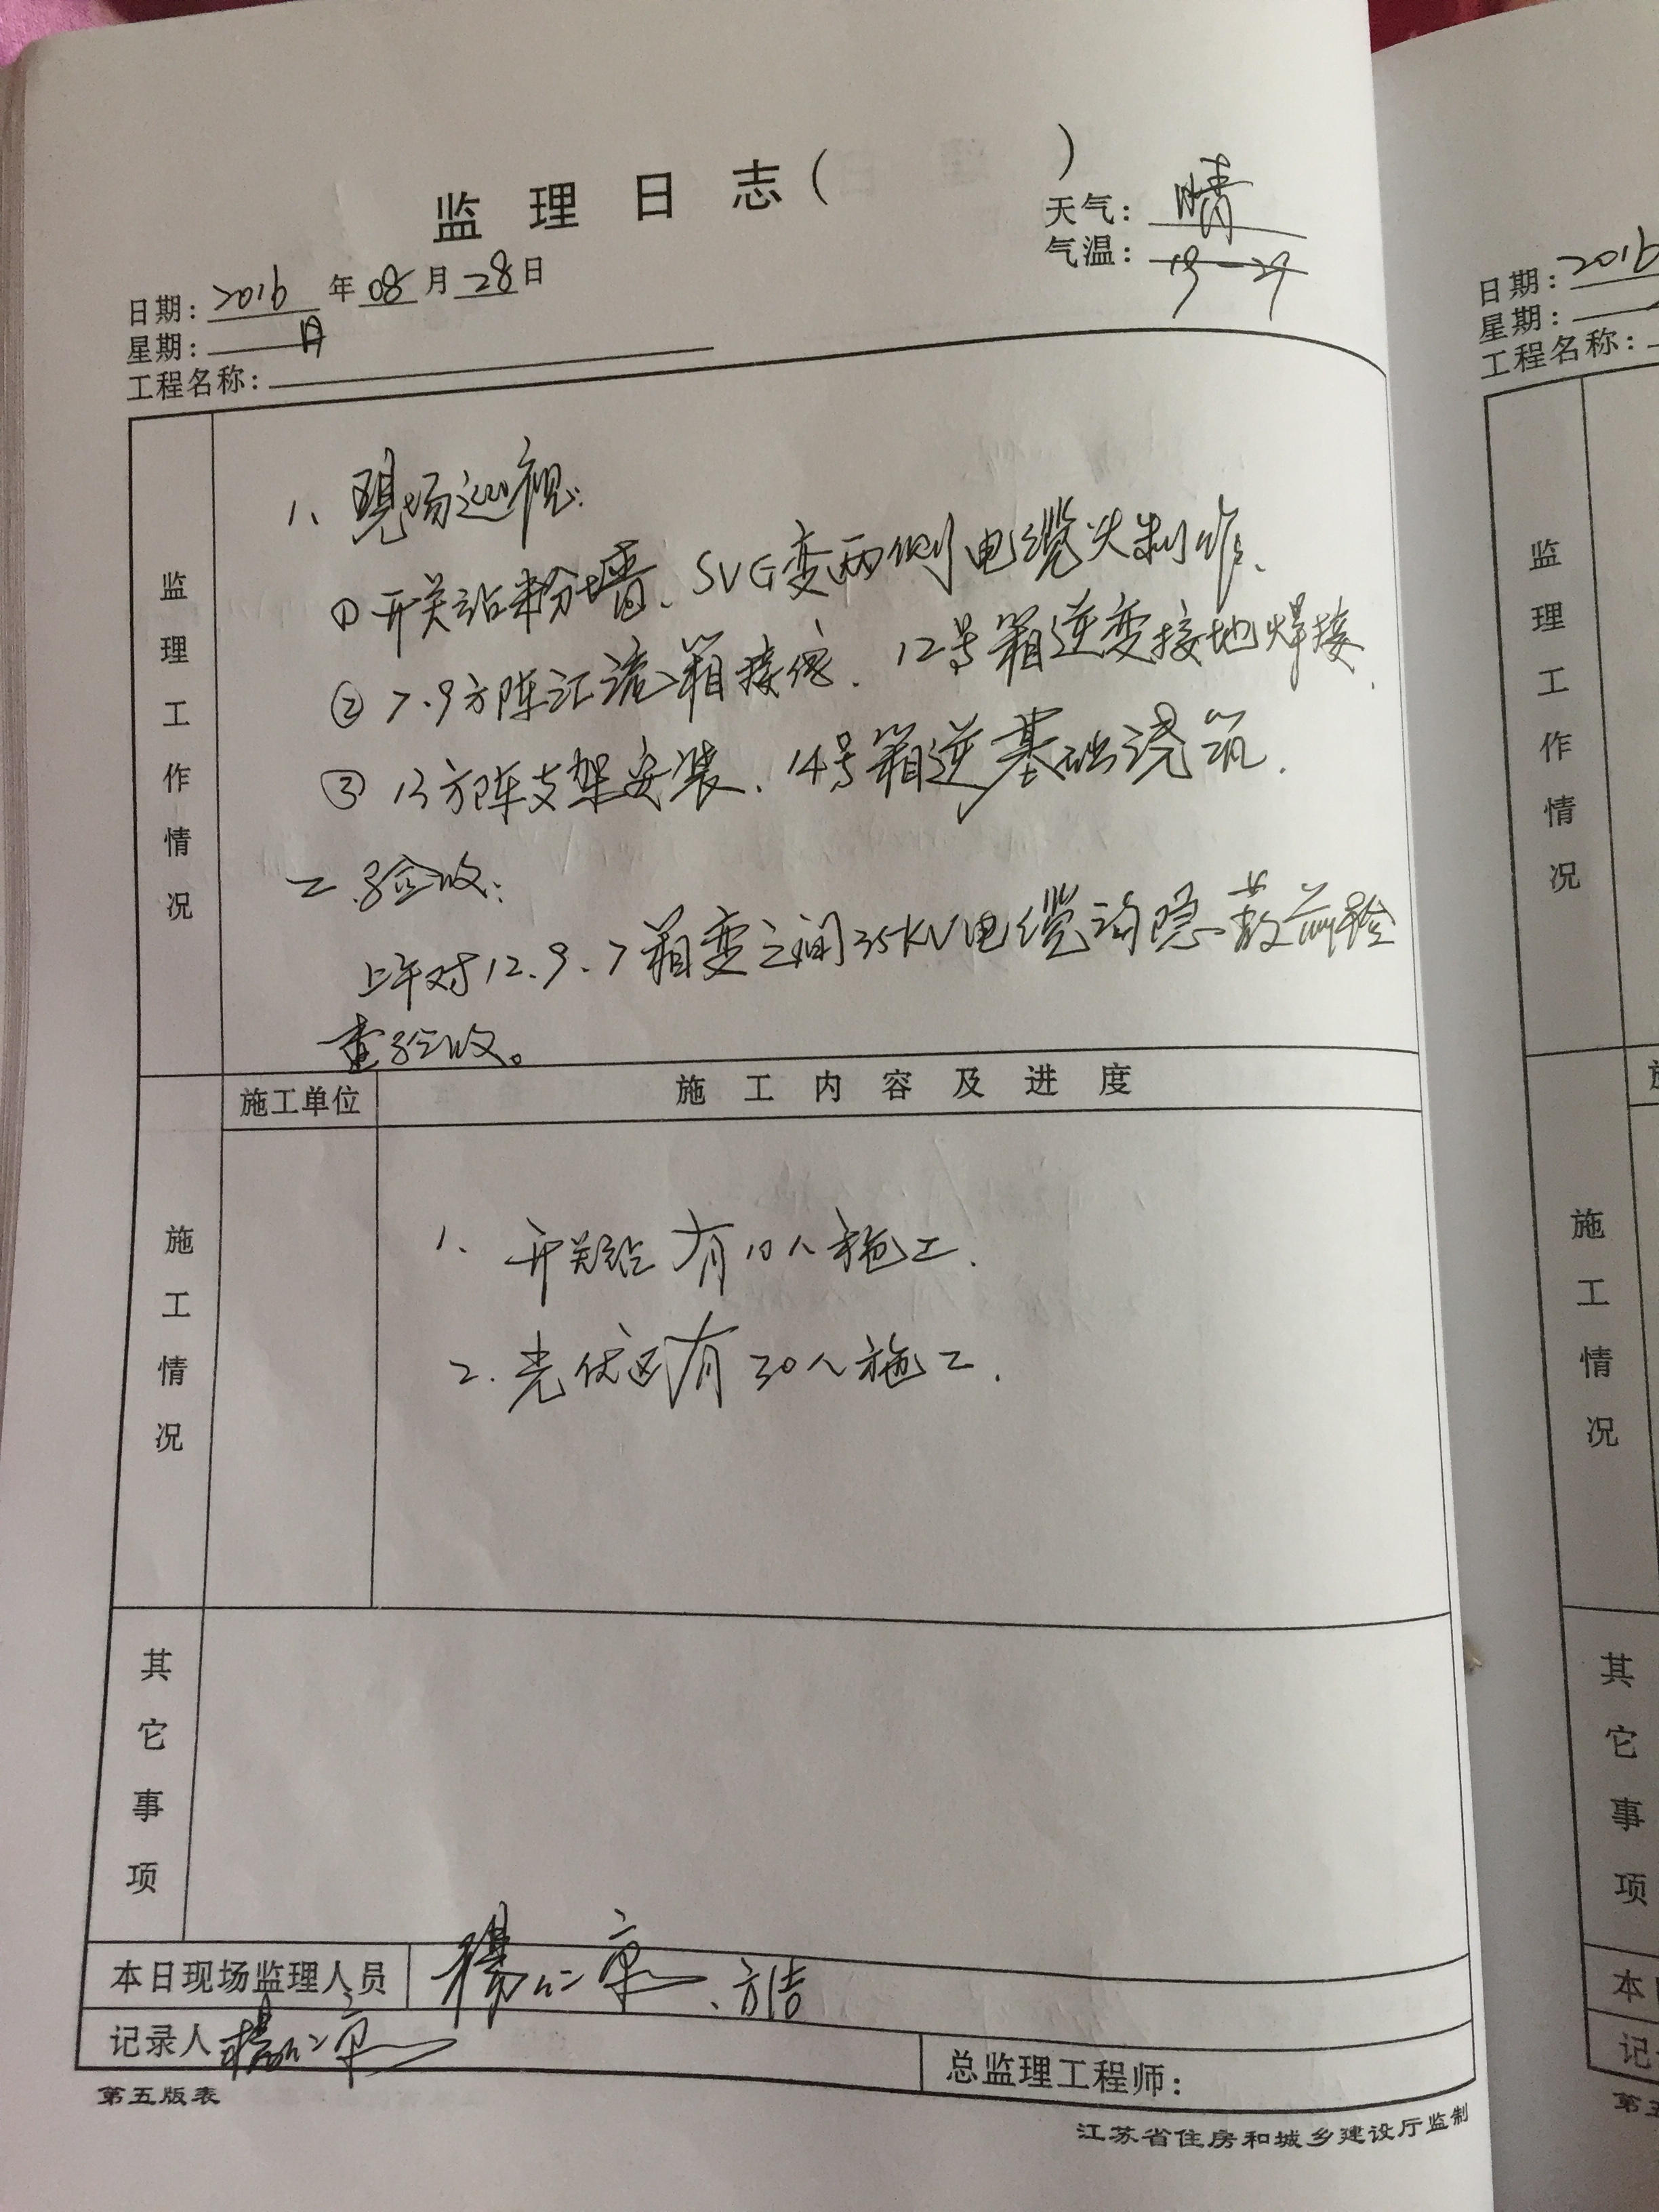 监理日志（　　）
天气：晴
气温：19—27
日期：2016年08月28日
星期：日
工程名称：
监理工作情况
1、现场巡视：
① 开关站粉墙、SVG变两侧电缆头制作、
② 7.9方阵汇流箱接线、12号箱逆变接地焊接、
③ 13方阵支架安装、14号箱逆基础浇筑.
二.验收：
上午对12、9、7箱变之间35KV电缆沟隐蔽前检
查验收。
施工单位
施工内容及进度
施工情况
1、开关站有10人施工.
2.光伏区有30人施工.
其它事项
本日现场监理人员
、方洁
记录人
总监理工程师：
第五版表
江苏省住房和城乡建设厅监制
2016
日期：
星期：
工程名称：
监理工作情况
施工情况
其它事项
本
记
第五